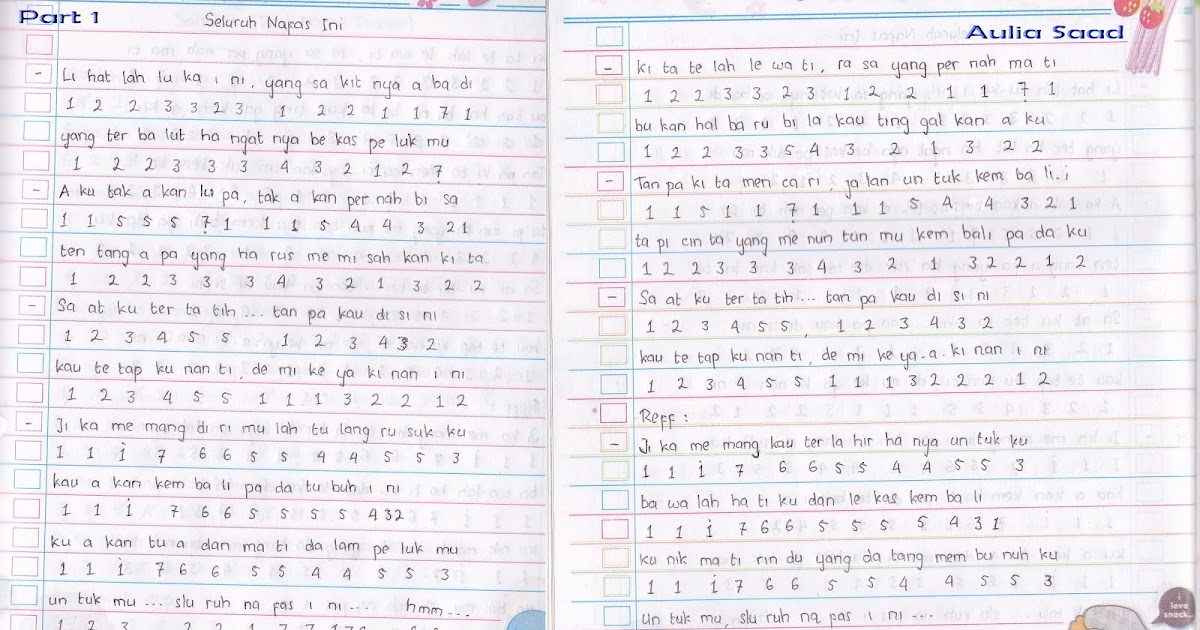 Part 1
Seluruh Napas Ini
- Li hat lah lu ka i ni, yang sa kit nya a ba di
1 2 2 3 3 2 3 1 2 2 1 1 7 1
yang ter ba lut ha ngat nya be kas pe luk mu
1 2 2 3 3 3 4 3 2 1 2 7
- A ku tak a kan lu pa, tak a kan per nah bi sa
1 1 5 5 5 7 1 1 1 5 4 4 3 2 1
ten tang a pa yang ha rus me mi sah kan ki ta
1 2 2 3 3 3 4 3 2 1 3 2 2
- Sa at ku ter ta tih ... tan pa kau di si ni
1 2 3 4 5 5 1 2 3 4 3 2
kau te tap ku nan ti, de mi ke ya ki nan i ni
1 2 3 4 5 5 1 1 1 3 2 2 1 2
- Ji ka me mang di ri mu lah tu lang ru suk ku
1 1 i 7 6 6 5 5 4 4 5 5 3
kau a kan kem ba li pa da tu buh i ni
1 1 i 7 6 6 5 5 5 5 5 4 3 2
ku a kan tu a dan ma ti da lam pe luk mu
1 1 i 7 6 6 5 5 4 4 5 5 3
un tuk mu ... slu ruh na pas i ni ... hmm ...
Aulia Saad
- ki ta te lah le wa ti, ra sa yang per nah ma ti
1 2 2 3 3 2 3 1 2 2 1 1 7 1
bu kan hal ba ru bi la kau ting gal kan a ku
1 2 2 3 3 5 4 3 2 1 3 2 2
- Tan pa ki ta men ca ri, ja lan un tuk kem ba li. i
1 1 5 1 1 7 1 1 1 5 4 4 3 2 1
ta pi cin ta yang me nun tun mu kem bali pa da ku
1 2 2 3 3 3 4 3 2 1 3 2 2 1 2
- Sa at ku ter ta tih ... tan pa kau di si ni
1 2 3 4 5 5, 1 2 3 4 3 2
kau te tap ku nan ti, de mi ke ya - a. ki nan i ni
1 2 3 4 5 5 1 1 1 3 2 2 2 1 2
Reff :
- Ji ka me mang kau ter la hir ha nya un tuk ku
1 1 i 7 6 6 5 5 4 4 5 5 3
ba wa lah ha ti ku dan le kas kem ba li
1 1 i 7 6 6 5 5 5 5 4 3 1
ku nik ma ti rin du yang da tang mem bu nuh ku
1 1 i 7 6 6 5 5 4 4 5 5 3
un tuk mu, slu ruh na pas i ni ...
i love snack..